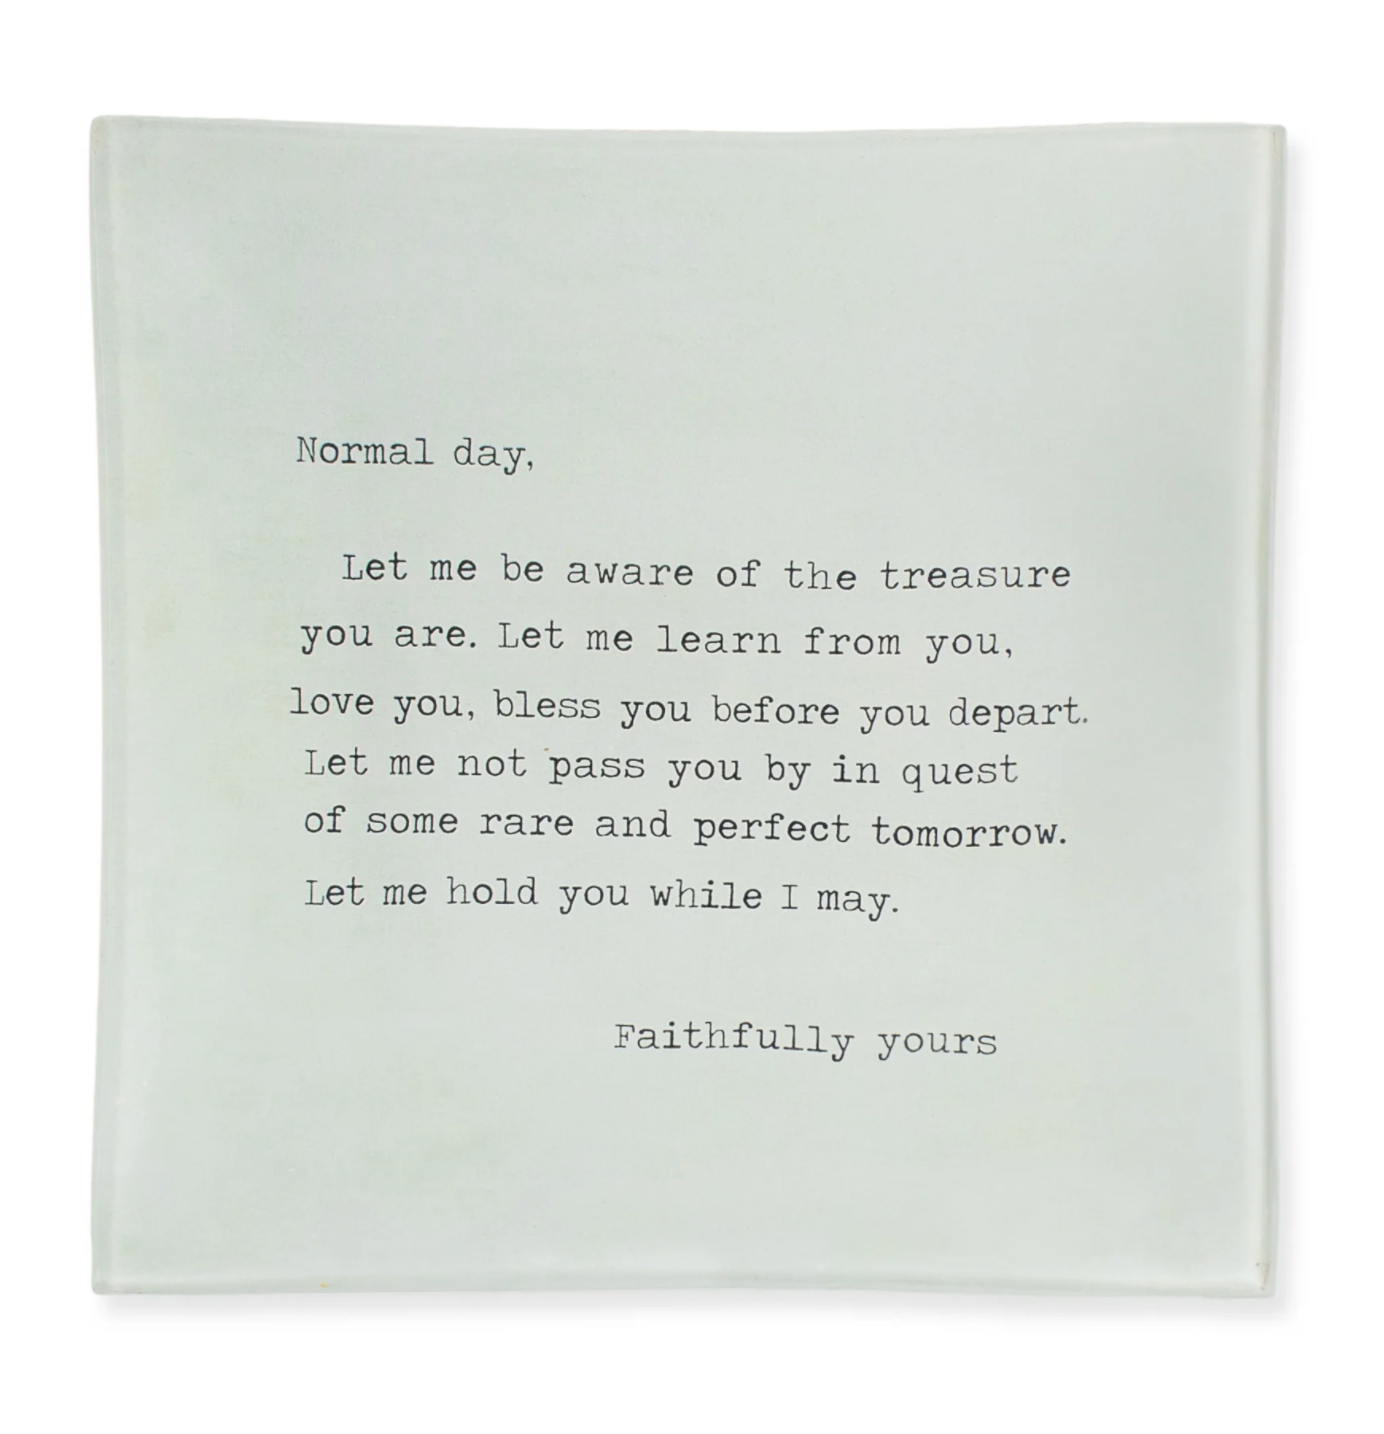 Normal day,
Let me be aware of the treasure
you are. Let me learn from you,
love you, bless you before you depart.
Let me not pass you by in quest
of some rare and perfect tomorrow.
Let me hold you while I may.
Faithfully yours